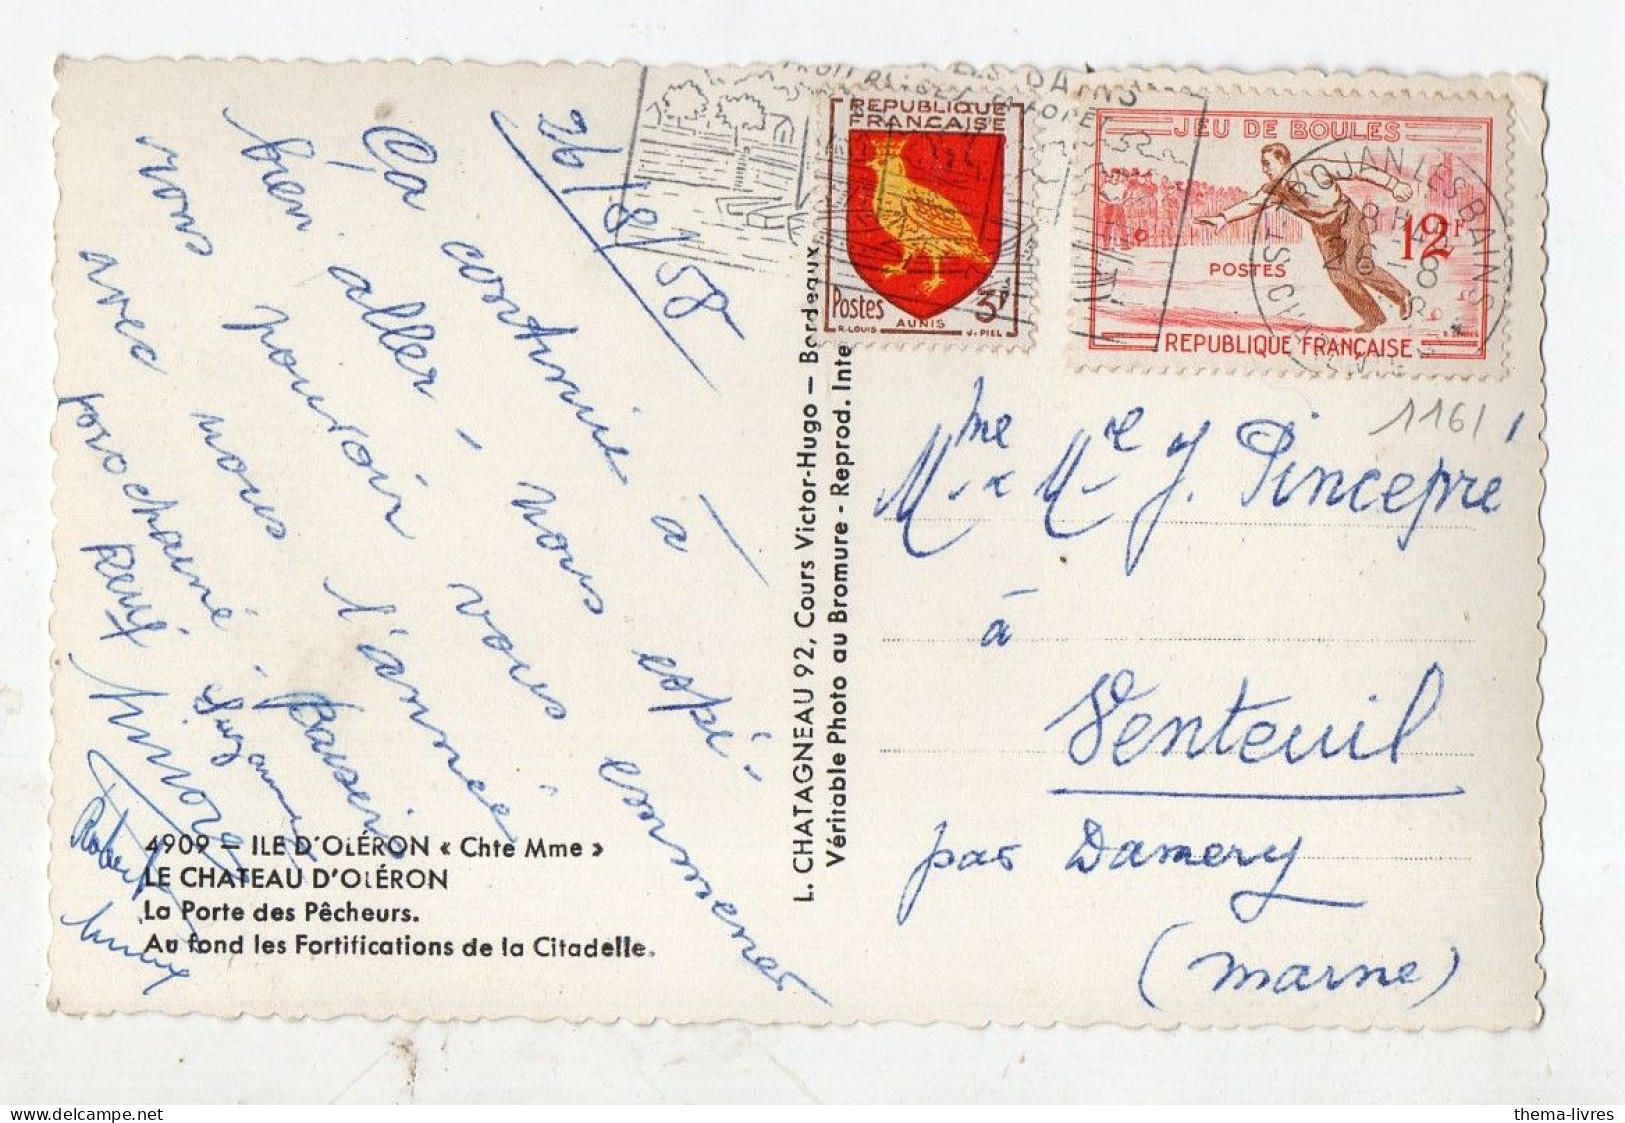 26/8/58
Ça continue à
bien aller - nous espé-
rons pouvoir vous emmener
avec nous l'année
prochaine. Baisers
Suzanne
4909 - ILE D'OLÉRON « Chte Mme »
LE CHATEAU D'OLÉRON
La Porte des Pêcheurs.
Au fond les Fortifications de la Citadelle.
L. CHATAGNEAU 92, Cours Victor-Hugo - Bordeaux
Véritable Photo au Bromure - Reprod. Inte
REPUBLIQUE
FRANÇAISE
Postes 3F
R. LOUIS AUNIS J. PIEL
JEU DE BOULES
12F
POSTES
REPUBLIQUE FRANÇAISE
ST TROJAN LES BAINS
18H
26-8
1161
Mme & Mr J. Pincepré
à
Venteuil
par Damery
(Marne)
thema-livres